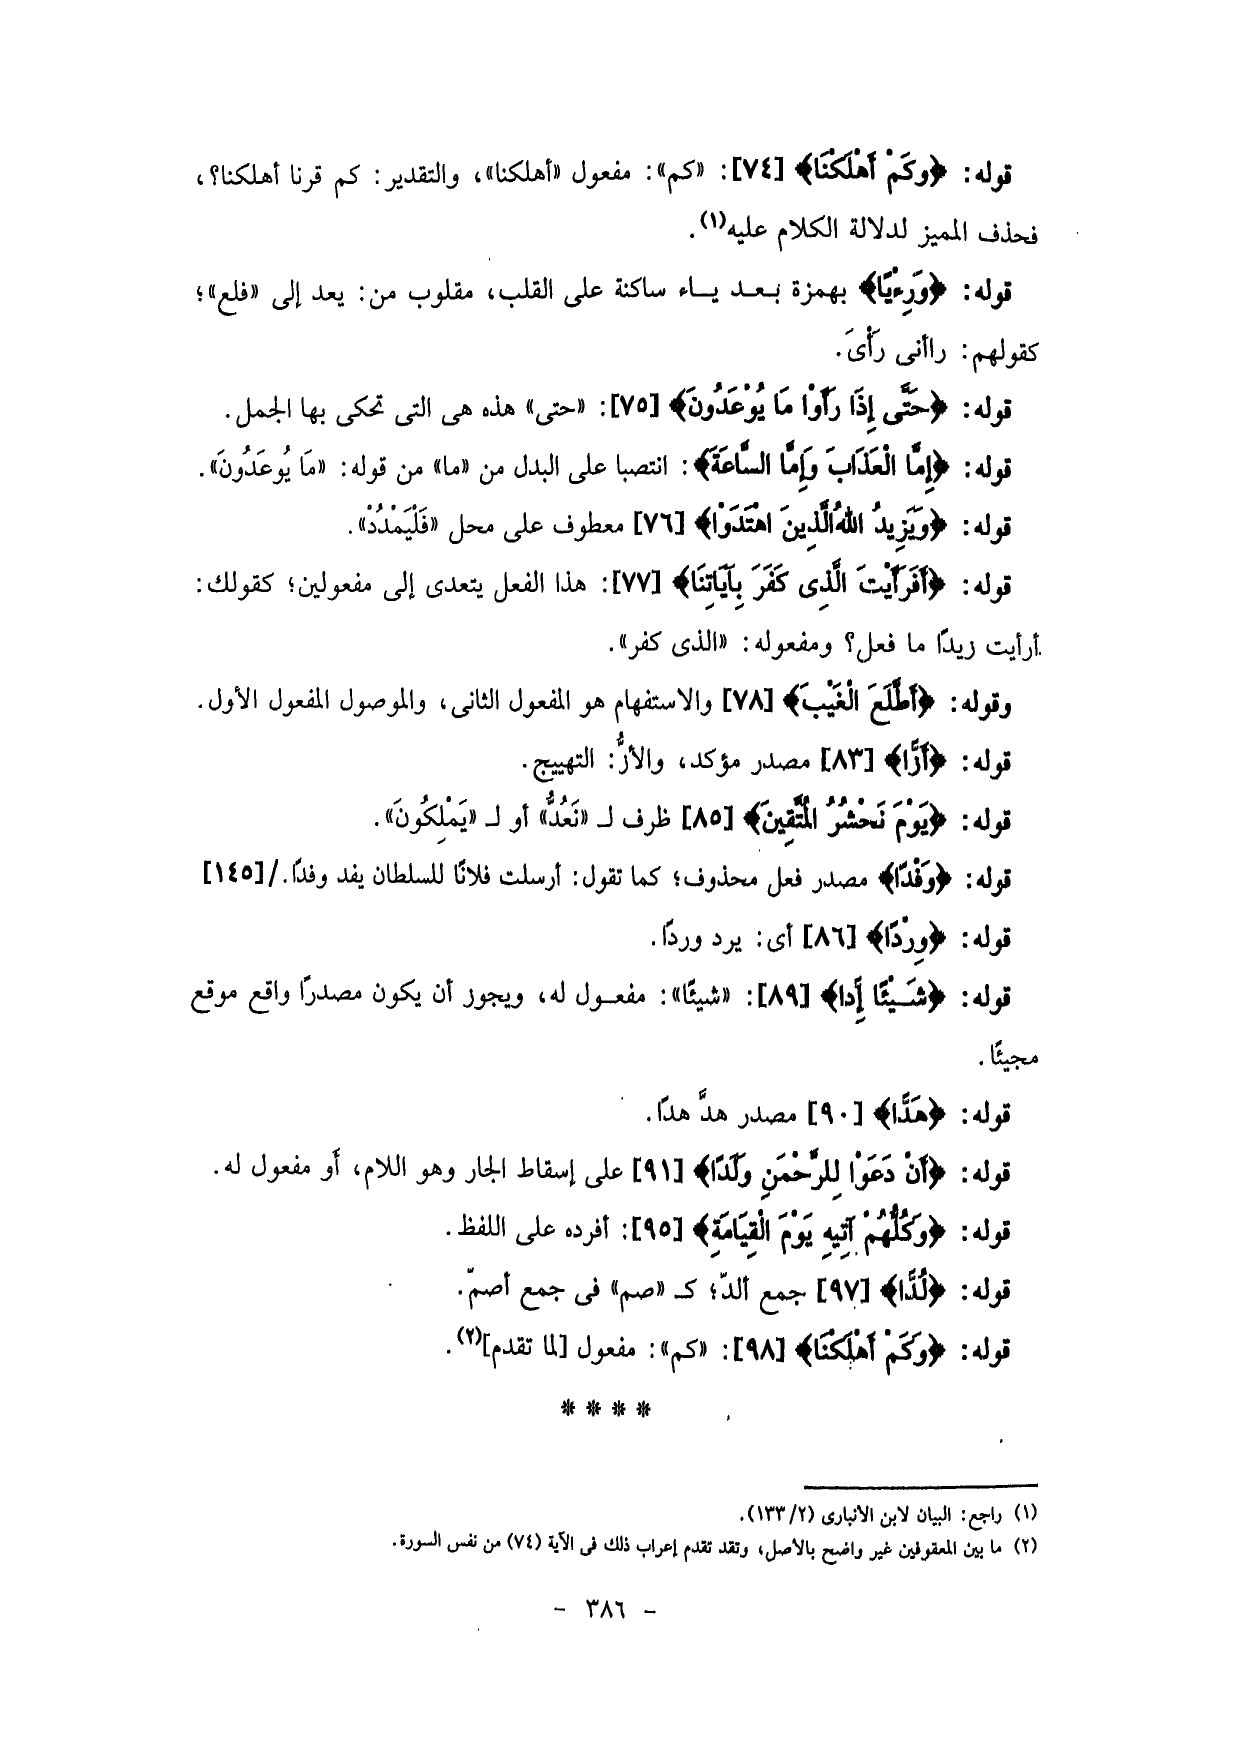 قوله: ﴿وكَمْ أَهْلَكْنَا﴾ [٧٤]: «كم»: مفعول «أهلكنا»، والتقدير: كم قرنا أهلكنا؟،
فحذف المميز لدلالة الكلام عليه(١).
قوله: ﴿وَرِءْيًا﴾ بهمزة بعد ياء ساكنة على القلب، مقلوب من: يعد إلى «فلع»؛
كقولهم: راأنى رَأْىَ.
قوله: ﴿حَتَّى إِذَا رَأَوْا مَا يُوْعَدُونَ﴾ [٧٥]: «حتى» هذه هى التى تحكى بها الجمل.
قوله: ﴿إِمَّا الْعَذَابَ وَإِمَّا السَّاعَةَ﴾: انتصبا على البدل من «ما» من قوله: «مَا يُوعَدُونَ».
قوله: ﴿وَيَزِيدُ اللهُ الَّذِينَ اهْتَدَوْا﴾ [٧٦] معطوف على محل «فَلْيَمْدُدْ».
قوله: ﴿أَفَرَأَيْتَ الَّذِى كَفَرَ بِآيَاتِنَا﴾ [٧٧]: هذا الفعل يتعدى إلى مفعولين؛ كقولك:
أرأيت زيدًا ما فعل؟ ومفعوله: «الذى كفر».
وقوله: ﴿أَطَّلَعَ الْغَيْبَ﴾ [٧٨] والاستفهام هو المفعول الثانى، والموصول المفعول الأول.
قوله: ﴿أَزًّا﴾ [٨٣] مصدر مؤكد، والأزُّ: التهييج.
قوله: ﴿يَوْمَ نَحْشُرُ الْمُتَّقِينَ﴾ [٨٥] ظرف لـ «نَعُدُّ» أو لـ «يَمْلِكُونَ».
قوله: ﴿وَفْدًا﴾ مصدر فعل محذوف؛ كما تقول: أرسلت فلانًا للسلطان يفد وفدًا./[١٤٥]
قوله: ﴿وِرْدًا﴾ [٨٦] أى: يرد وردًا.
قوله: ﴿شَيْئًا إِدا﴾ [٨٩]: «شيئًا»: مفعول له، ويجوز أن يكون مصدرًا واقع موقع
مجيئًا.
قوله: ﴿هَدًّا﴾ [٩٠] مصدر هدَّ هدًا.
قوله: ﴿أَنْ دَعَوْا لِلرَّحْمَنِ وَلَدًا﴾ [٩١] على إسقاط الجار وهو اللام، أو مفعول له.
قوله: ﴿وَكُلُّهُمْ آتِيهِ يَوْمَ الْقِيَامَةِ﴾ [٩٥]: أفرده على اللفظ.
قوله: ﴿لُدًّا﴾ [٩٧] جمع ألدّ؛ كـ «صم» فى جمع أصمّ.
قوله: ﴿وَكَمْ أَهْلَكْنَا﴾ [٩٨]: «كم»: مفعول [لما تقدم](٢).
* * * *
(١) راجع: البيان لابن الأنبارى (٢/ ١٣٣).
(٢) ما بين المعقوفين غير واضح بالأصل، وتقد تقدم إعراب ذلك فى الآية (٧٤) من نفس السورة.
- ٣٨٦ -